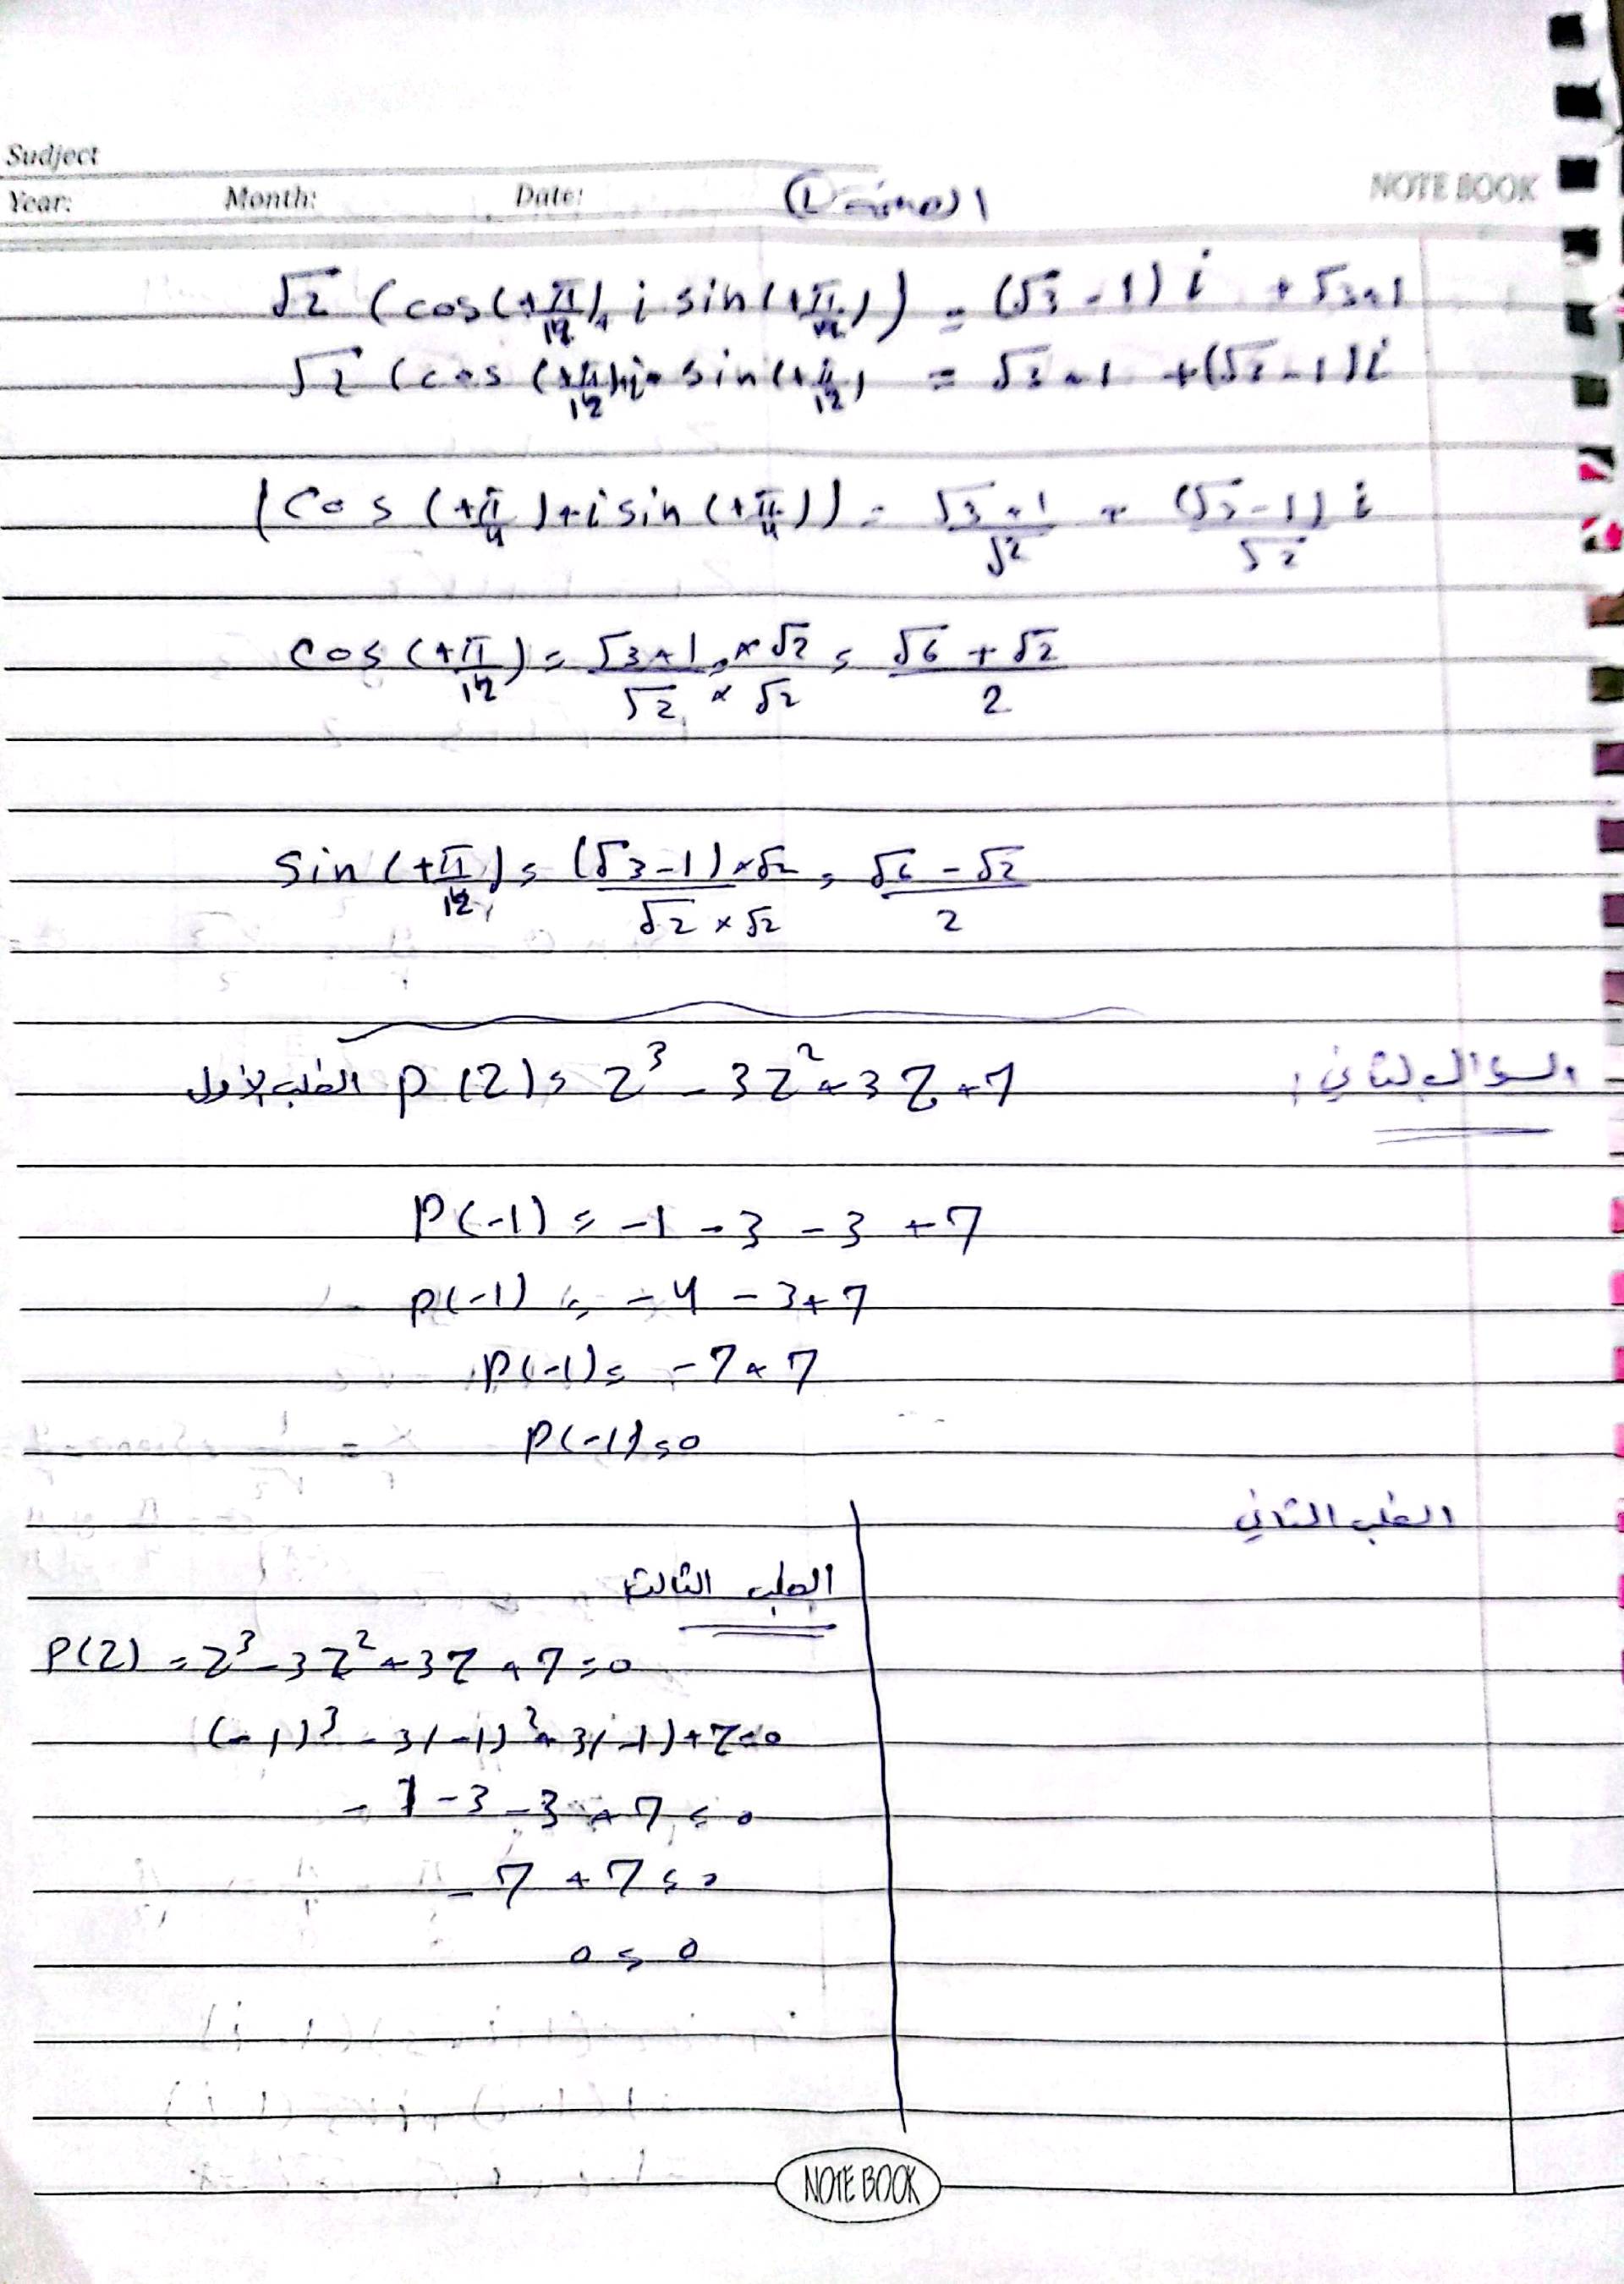 Sudject
Year: Month: Date: الصفحة (1) NOTE BOOK
√2 (cos(+π/12)+ i sin(+π/12)) = (√3 - 1) i + √3+1
√2 (cos (+π/12)+i sin(+π/12) = √3+1 +(√3-1)i
(cos (+π/4)+i sin (+π/4)) = √3+1/√2 + (√3-1) i/√2
cos (+π/12) = √3+1 × √2/√2 × √2 = √6 + √2/2
sin (+π/12) = (√3-1)×√2/√2 × √2 = √6 - √2/2
السؤال الثاني:
الطلب الأول p(z) = z³ - 3z² + 3z + 7
P(-1) = -1 - 3 - 3 + 7
p(-1) = -4 - 3+7
p(-1) = -7+7
p(-1) = 0
الطلب الثاني
الطلب الثالث
P(z) = z³ - 3z² + 3z + 7 = 0
(-1)³ - 3(-1)² + 3(-1) + 7 = 0
- 1 - 3 - 3 + 7 = 0
- 7 + 7 = 0
0 = 0
NOTE BOOK